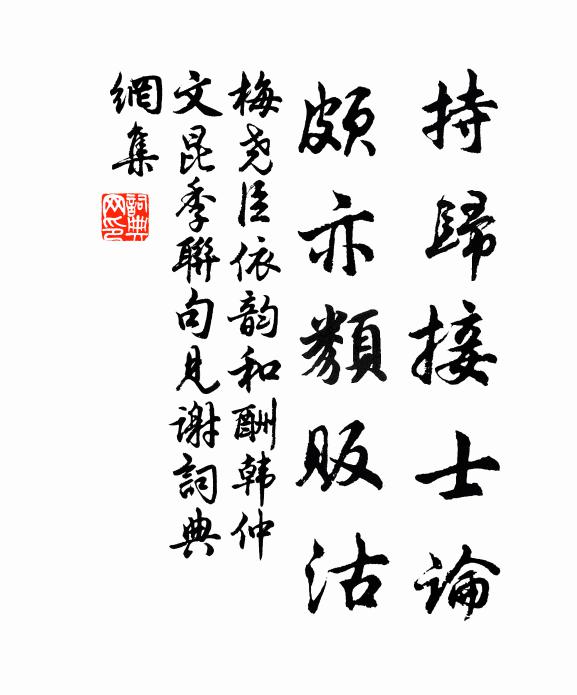 持歸接士論
頗亦類販沽
梅堯臣依韵和酬韩仲
文昆季聯句見谢詞典
網集
詞典网印